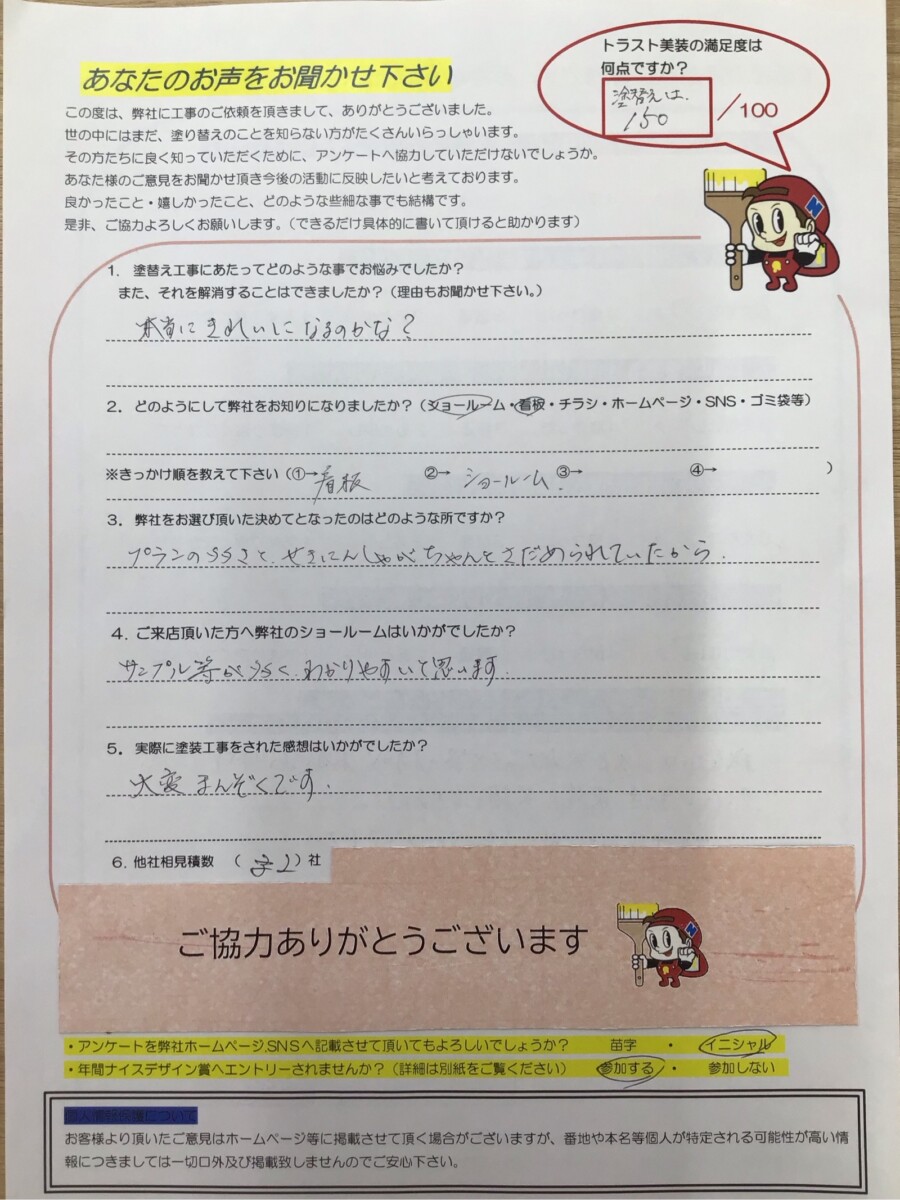 トラスト美装の満足度は
何点ですか？
塗替えは、
150
/100
あなたのお声をお聞かせ下さい
この度は、弊社に工事のご依頼を頂きまして、ありがとうございました。
世の中にはまだ、塗り替えのことを知らない方がたくさんいらっしゃいます。
その方たちに良く知っていただくために、アンケートへ協力していただけないでしょうか。
あなた様のご意見をお聞かせ頂き今後の活動に反映したいと考えております。
良かったこと・嬉しかったこと、どのような些細な事でも結構です。
是非、ご協力よろしくお願いします。（できるだけ具体的に書いて頂けると助かります）
N
1. 塗替え工事にあたってどのような事でお悩みでしたか？
また、それを解消することはできましたか？（理由もお聞かせ下さい。）
本当にきれいになるのかな？
2. どのようにして弊社をお知りになりましたか？（ショールーム・看板・チラシ・ホームページ・SNS・ゴミ袋等）
※きっかけ順を教えて下さい（①→看板 ②→ショールーム ③→ ④→ ）
3. 弊社をお選び頂いた決めてとなったのはどのような所ですか？
プランの多さと、せきにんしゃがちゃんとさだめられていたから。
4. ご来店頂いた方へ弊社のショールームはいかがでしたか？
サンプル等が多く、わかりやすいと思います。
5. 実際に塗装工事をされた感想はいかがでしたか？
大変まんぞくです。
6. 他社相見積数 （ ）社
ご協力ありがとうございます
N
・アンケートを弊社ホームページ,SNSへ記載させて頂いてもよろしいでしょうか？ 苗字 ・ イニシャル
・年間ナイスデザイン賞へエントリーされませんか？（詳細は別紙をご覧ください） 参加する ・ 参加しない
個人情報保護について
お客様より頂いたご意見はホームページ等に掲載させて頂く場合がございますが、番地や本名等個人が特定される可能性が高い情
報につきましては一切口外及び掲載致しませんのでご安心下さい。